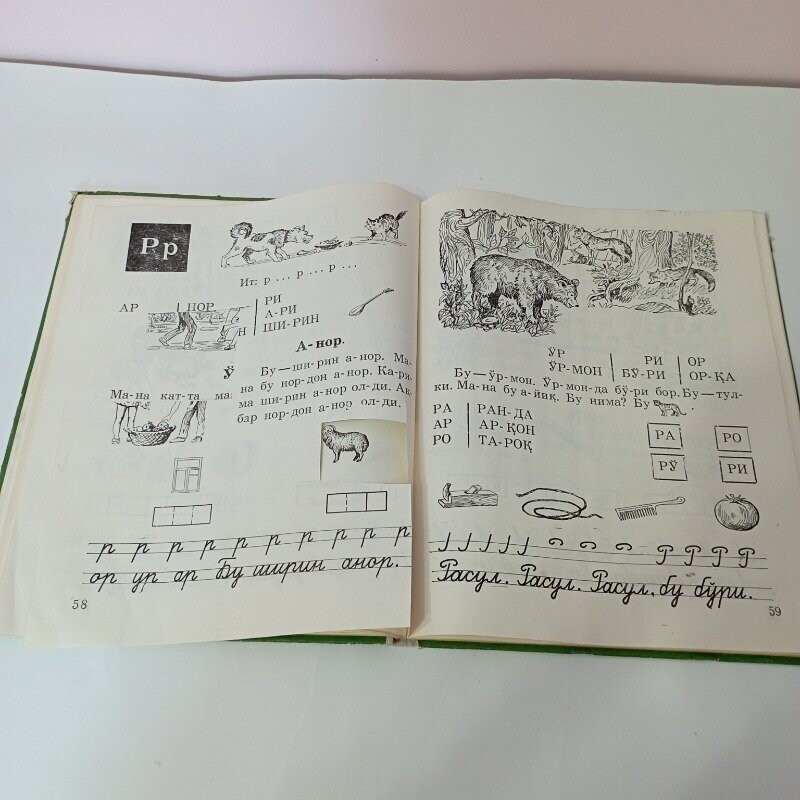 Рр
Ит: р ... р ... р ...
АР НОР РИ
А-РИ
Н ШИ-РИН
А-нор.
Ў Бу—ши-рин а-нор. Ма-
на бу нор-дон а-нор. Ка-ри-
Ма-на кат-та ма ма ши-рин а-нор ол-ди. Ак-
бар нор-дон а-нор ол-ди.
р р р р р р р р р р
ор ур ар Бу ширин анор.
58
ЎР РИ ОР
ЎР-МОН БЎ-РИ ОР-ҚА
Бу—ўр-мон. Ўр-мон-да бў-ри бор. Бу—тул-
ки. Ма-на бу а-йиқ. Бу нима? Бу
РА РАН-ДА
АР АР-ҚОН
РО ТА-РОҚ
РА РО
РЎ РИ
Р Р Р Р
Расул. Расул. Расул, бу бўри.
59